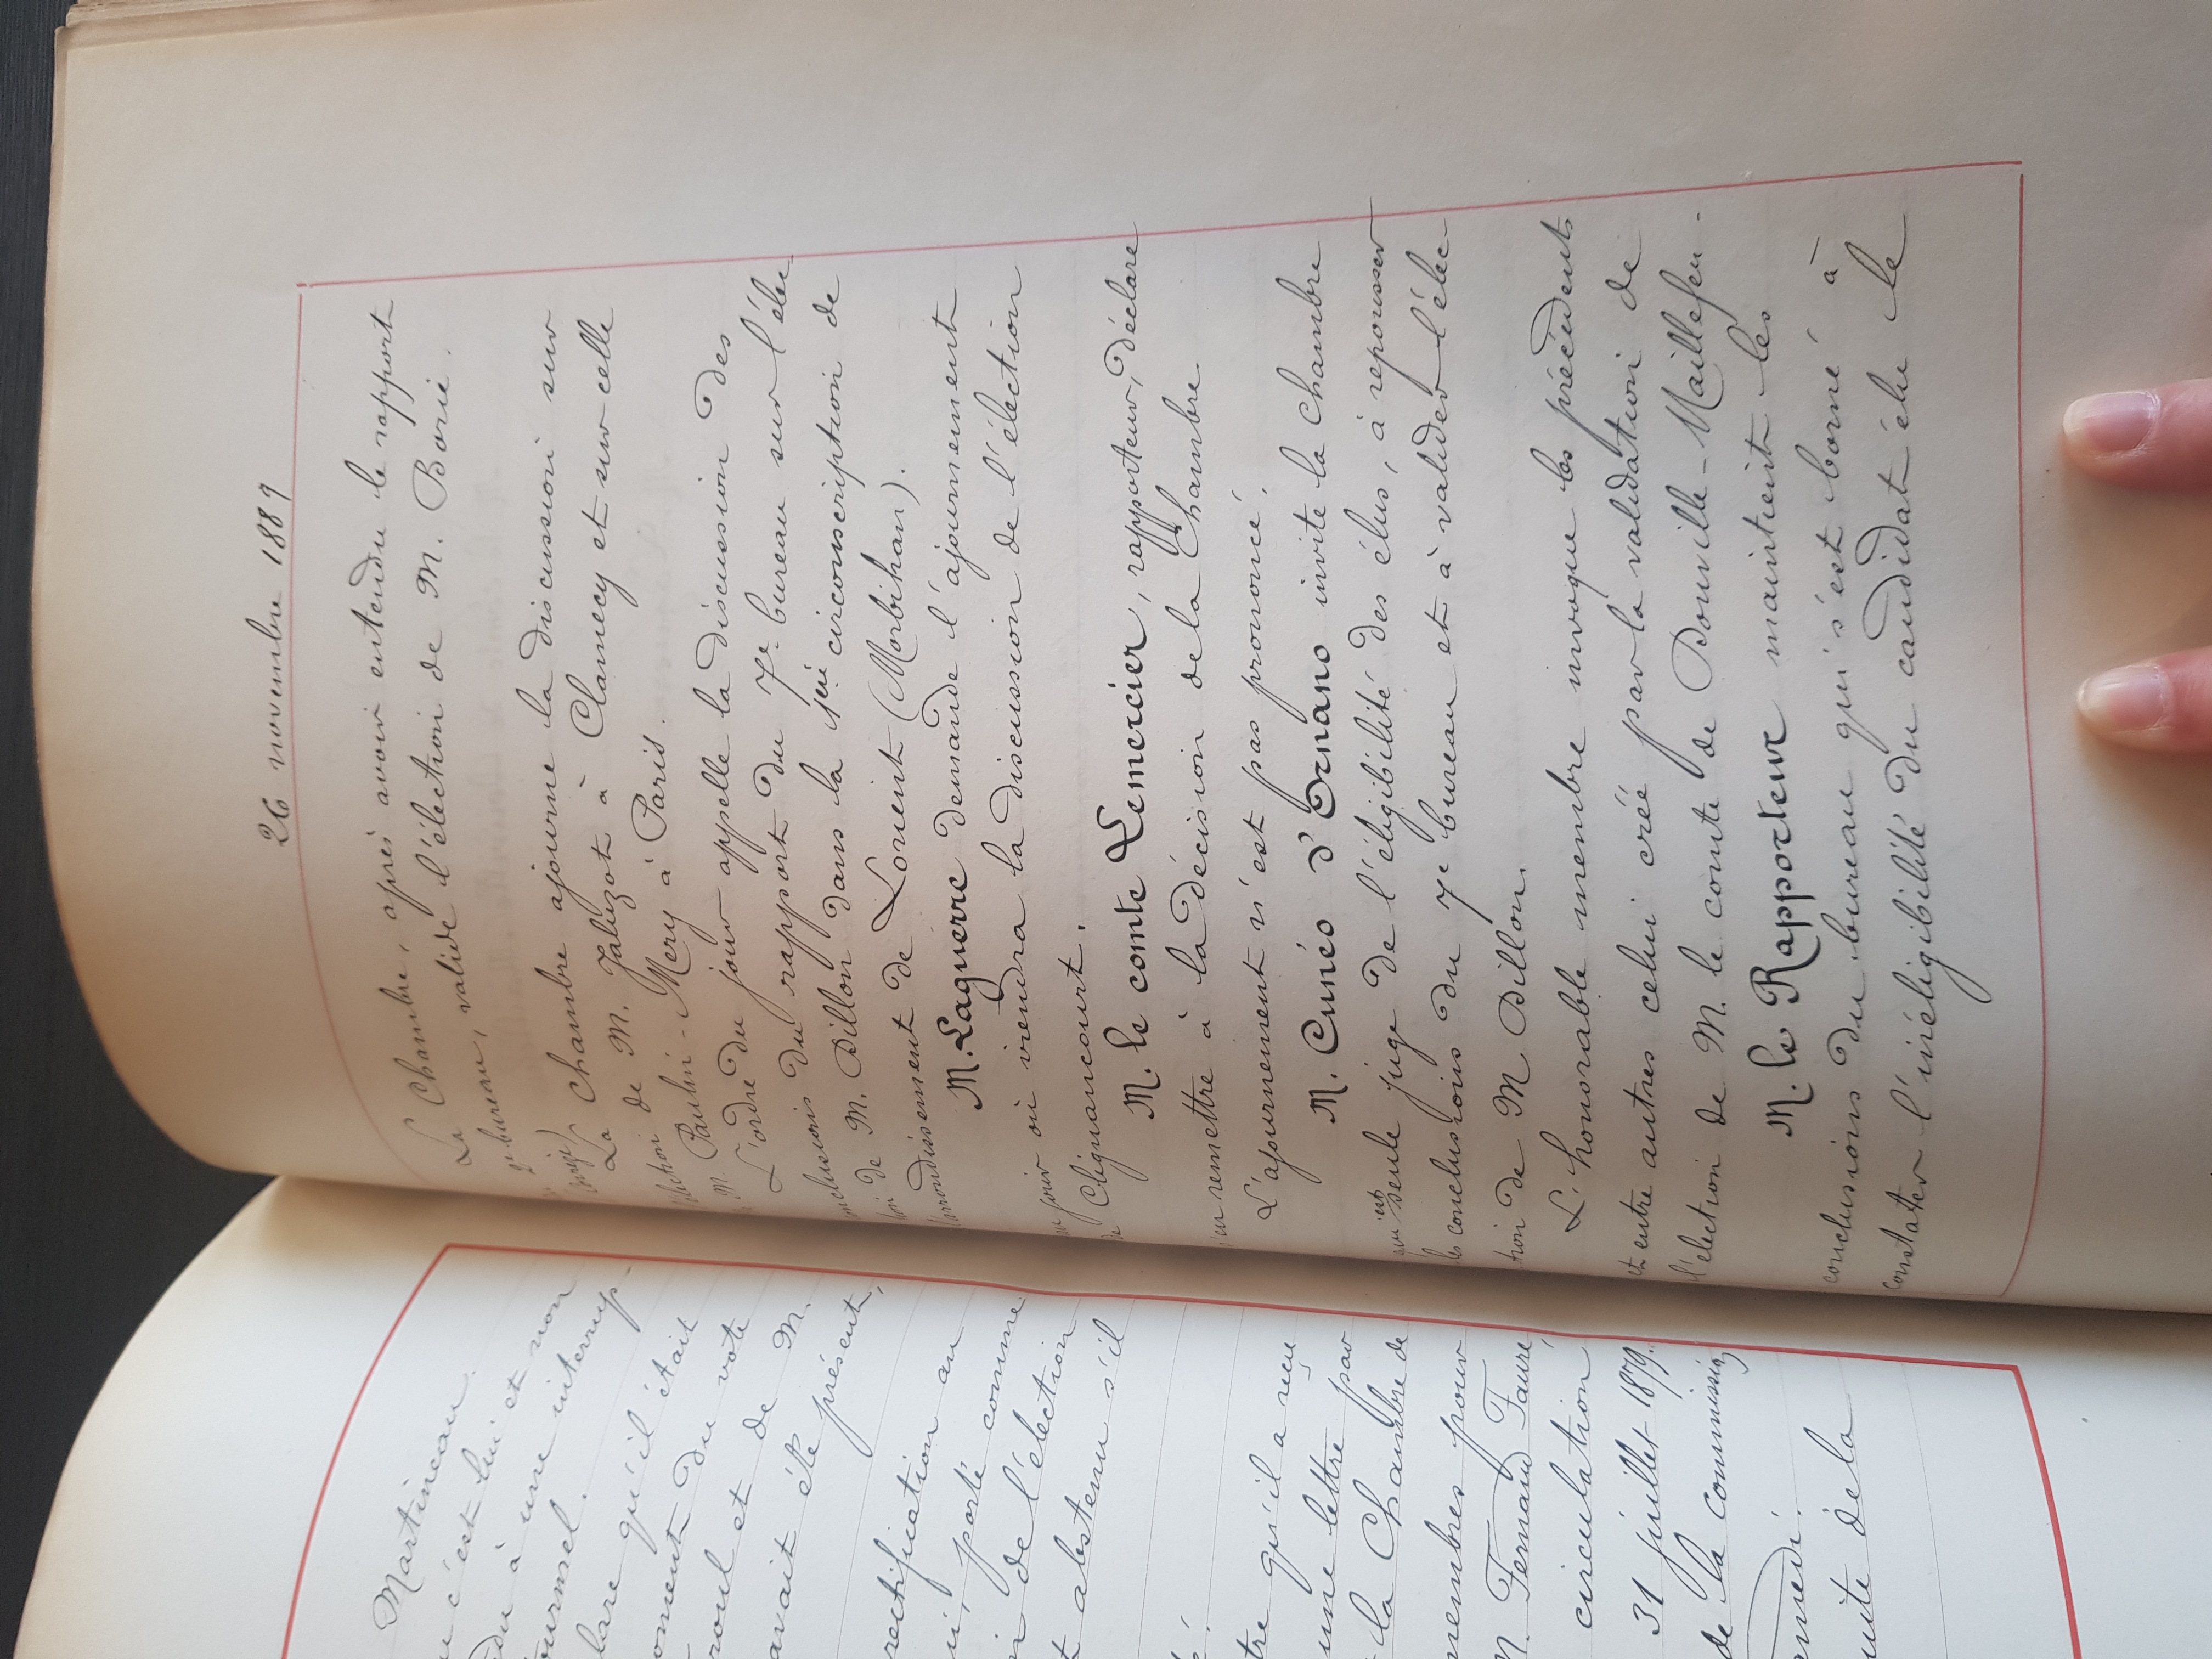 Martineau.
c'est lui et non
à une interrup-
lare qu'il était
du vote
et de M.
avait été présent,
rectification au
porté comme
de l'élection
abstenu s'il
tre qu'il a reçu
une lettre par
la Chambre de
membres pour
M. Fernand Faure,
circulation
31 juillet 1879.
de la commission
de la
26 novembre 1889
La Chambre, après avoir entendu le rapport
2e bureau, valide l'élection de M. Borie.
(Corrèze)
La Chambre ajourne la discussion sur
l'élection de M. Jaluzot à Clamecy et sur celle
M. Paulin-Mery à Paris.
L'ordre du jour appelle la discussion des
conclusions du rapport du 7e bureau sur l'élec-
tion de M. Dillon dans la 1ère circonscription de
l'arrondissement de Lorient (Morbihan).
M. Laguerre demande l'ajournement
au jour où viendra la discussion de l'élection
de Clignancourt.
M. le comte Lemercier, rapporteur, déclare
s'en remettre à la décision de la Chambre
L'ajournement n'est pas prononcé.
M. Cunéo d'Ornano invite la Chambre
qui est seule juge de l'éligibilité des élus, à repousser
les conclusions du 7e bureau et à valider l'élec-
tion de M Dillon.
L'honorable membre invoque les précédents
et entre autres celui créé par la validation de
l'élection de M. le comte de Douville-Maillefeu.
M. le Rapporteur maintient les
conclusions du bureau qui s'est borné à
constater l'inéligibilité du candidat élu le